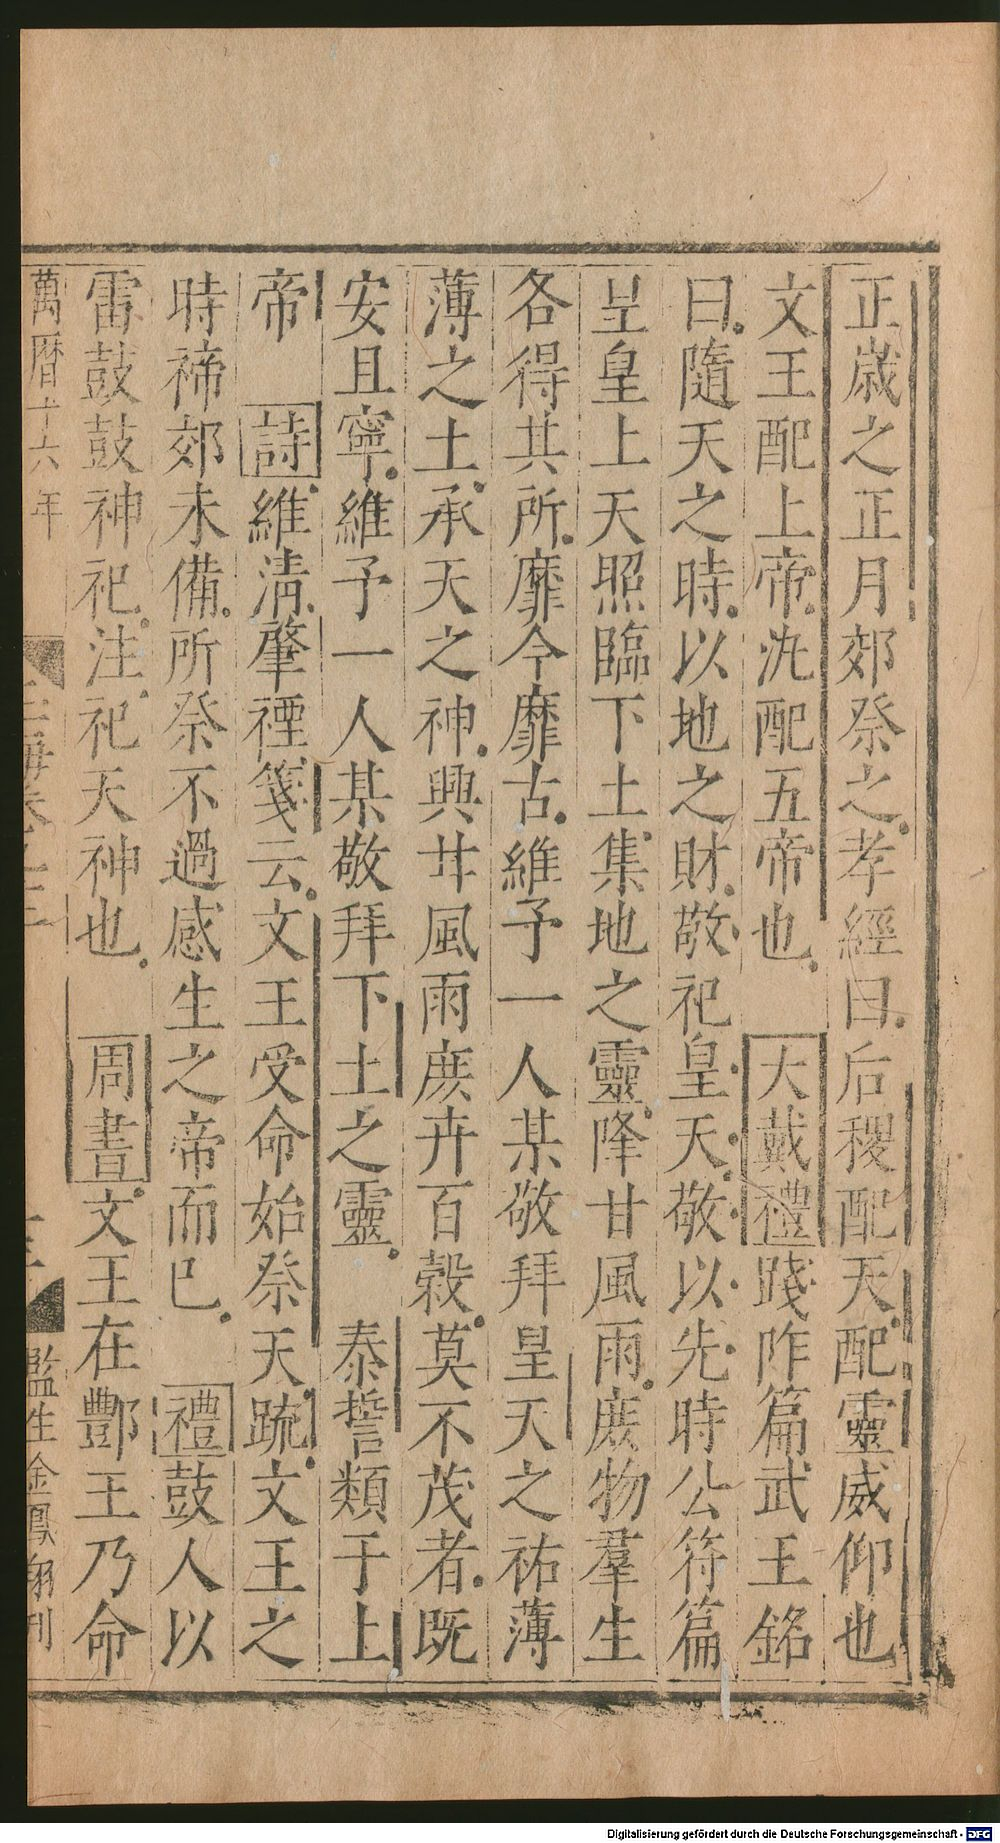 正歲之正月郊祭之孝經曰后稷配天配靈威仰也
文王配上帝汎配五帝也 大戴禮踐阼篇武王銘
曰隨天之時以地之財敬祀皇天敬以先時公符篇
皇皇上天照臨下土集地之靈降甘風雨庶物羣生
各得其所靡今靡古維予一人某敬拜皇天之祐薄
薄之土承天之神興甘風雨庶卉百榖莫不茂者既
安且寧維予一人某敬拜下土之靈 泰誓類于上
帝 詩維清肇禋箋云文王受命始祭天䟽文王之
時禘郊未備所祭不過感生之帝而已 禮鼓人以
雷鼓鼓神祀注祀天神也 周書文王在酆王乃命
萬曆十六年 玉海卷之 監生金鳳翔刊
Digitalisierung gefördert durch die Deutsche Forschungsgemeinschaft - DFG